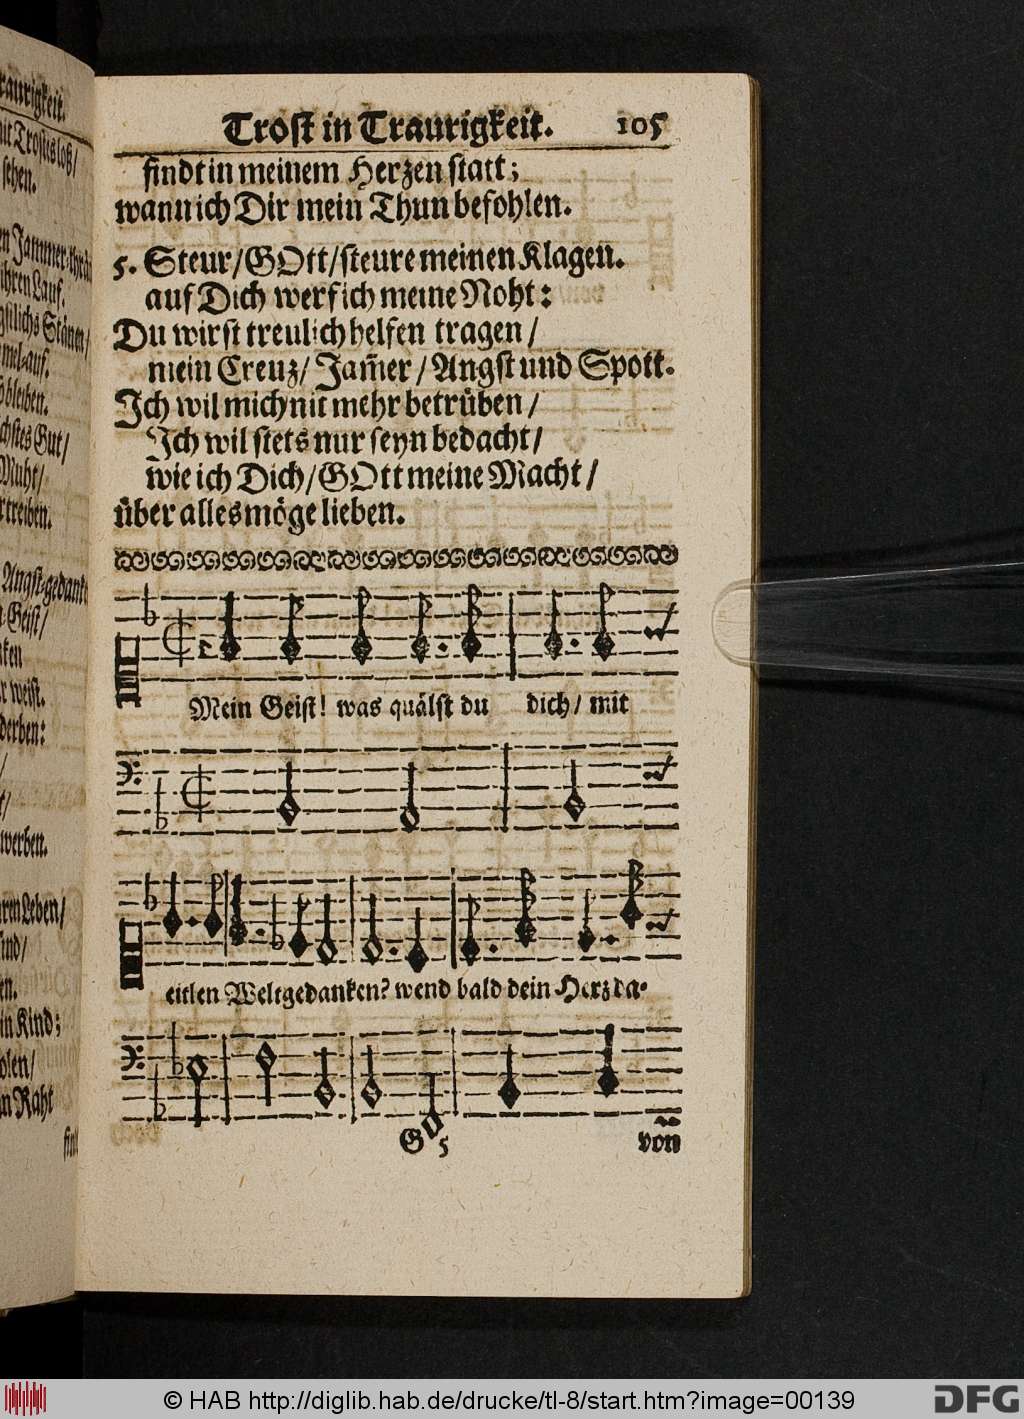 Trost in Traurigkeit. 105
findt in meinem Herzen statt;
wann ich Dir mein Thun befohlen.
5. Steur/GOtt/steure meinen Klagen.
auf Dich werf ich meine Noht:
Du wirst treulich helfen tragen/
mein Creuz/ Jam̃er/ Angst und Spott.
Ich wil mich nit mehr betrüben/
Ich wil stets nur seyn bedacht/
wie ich Dich/GOtt meine Macht/
über alles möge lieben.
Mein Geist! was quälst du dich/ mit
eitlen Weltgedanken? wend bald dein Herz da-
G 5 von
raurigkeit.
it Trostes loß/
sehen.
n Jammer-thrän
ihren Lauf.
gstlichs Stänen/
mel-auf.
bleiben.
chstes Gut/
Muht/
rtreiben.
Angst-gedank
Geist/
ken
r weist.
derben:
/
t/
werben.
ren Leben/
ind/
en.
in Kind;
olen/
n Raht
© HAB http://diglib.hab.de/drucke/tl-8/start.htm?image=00139
DFG